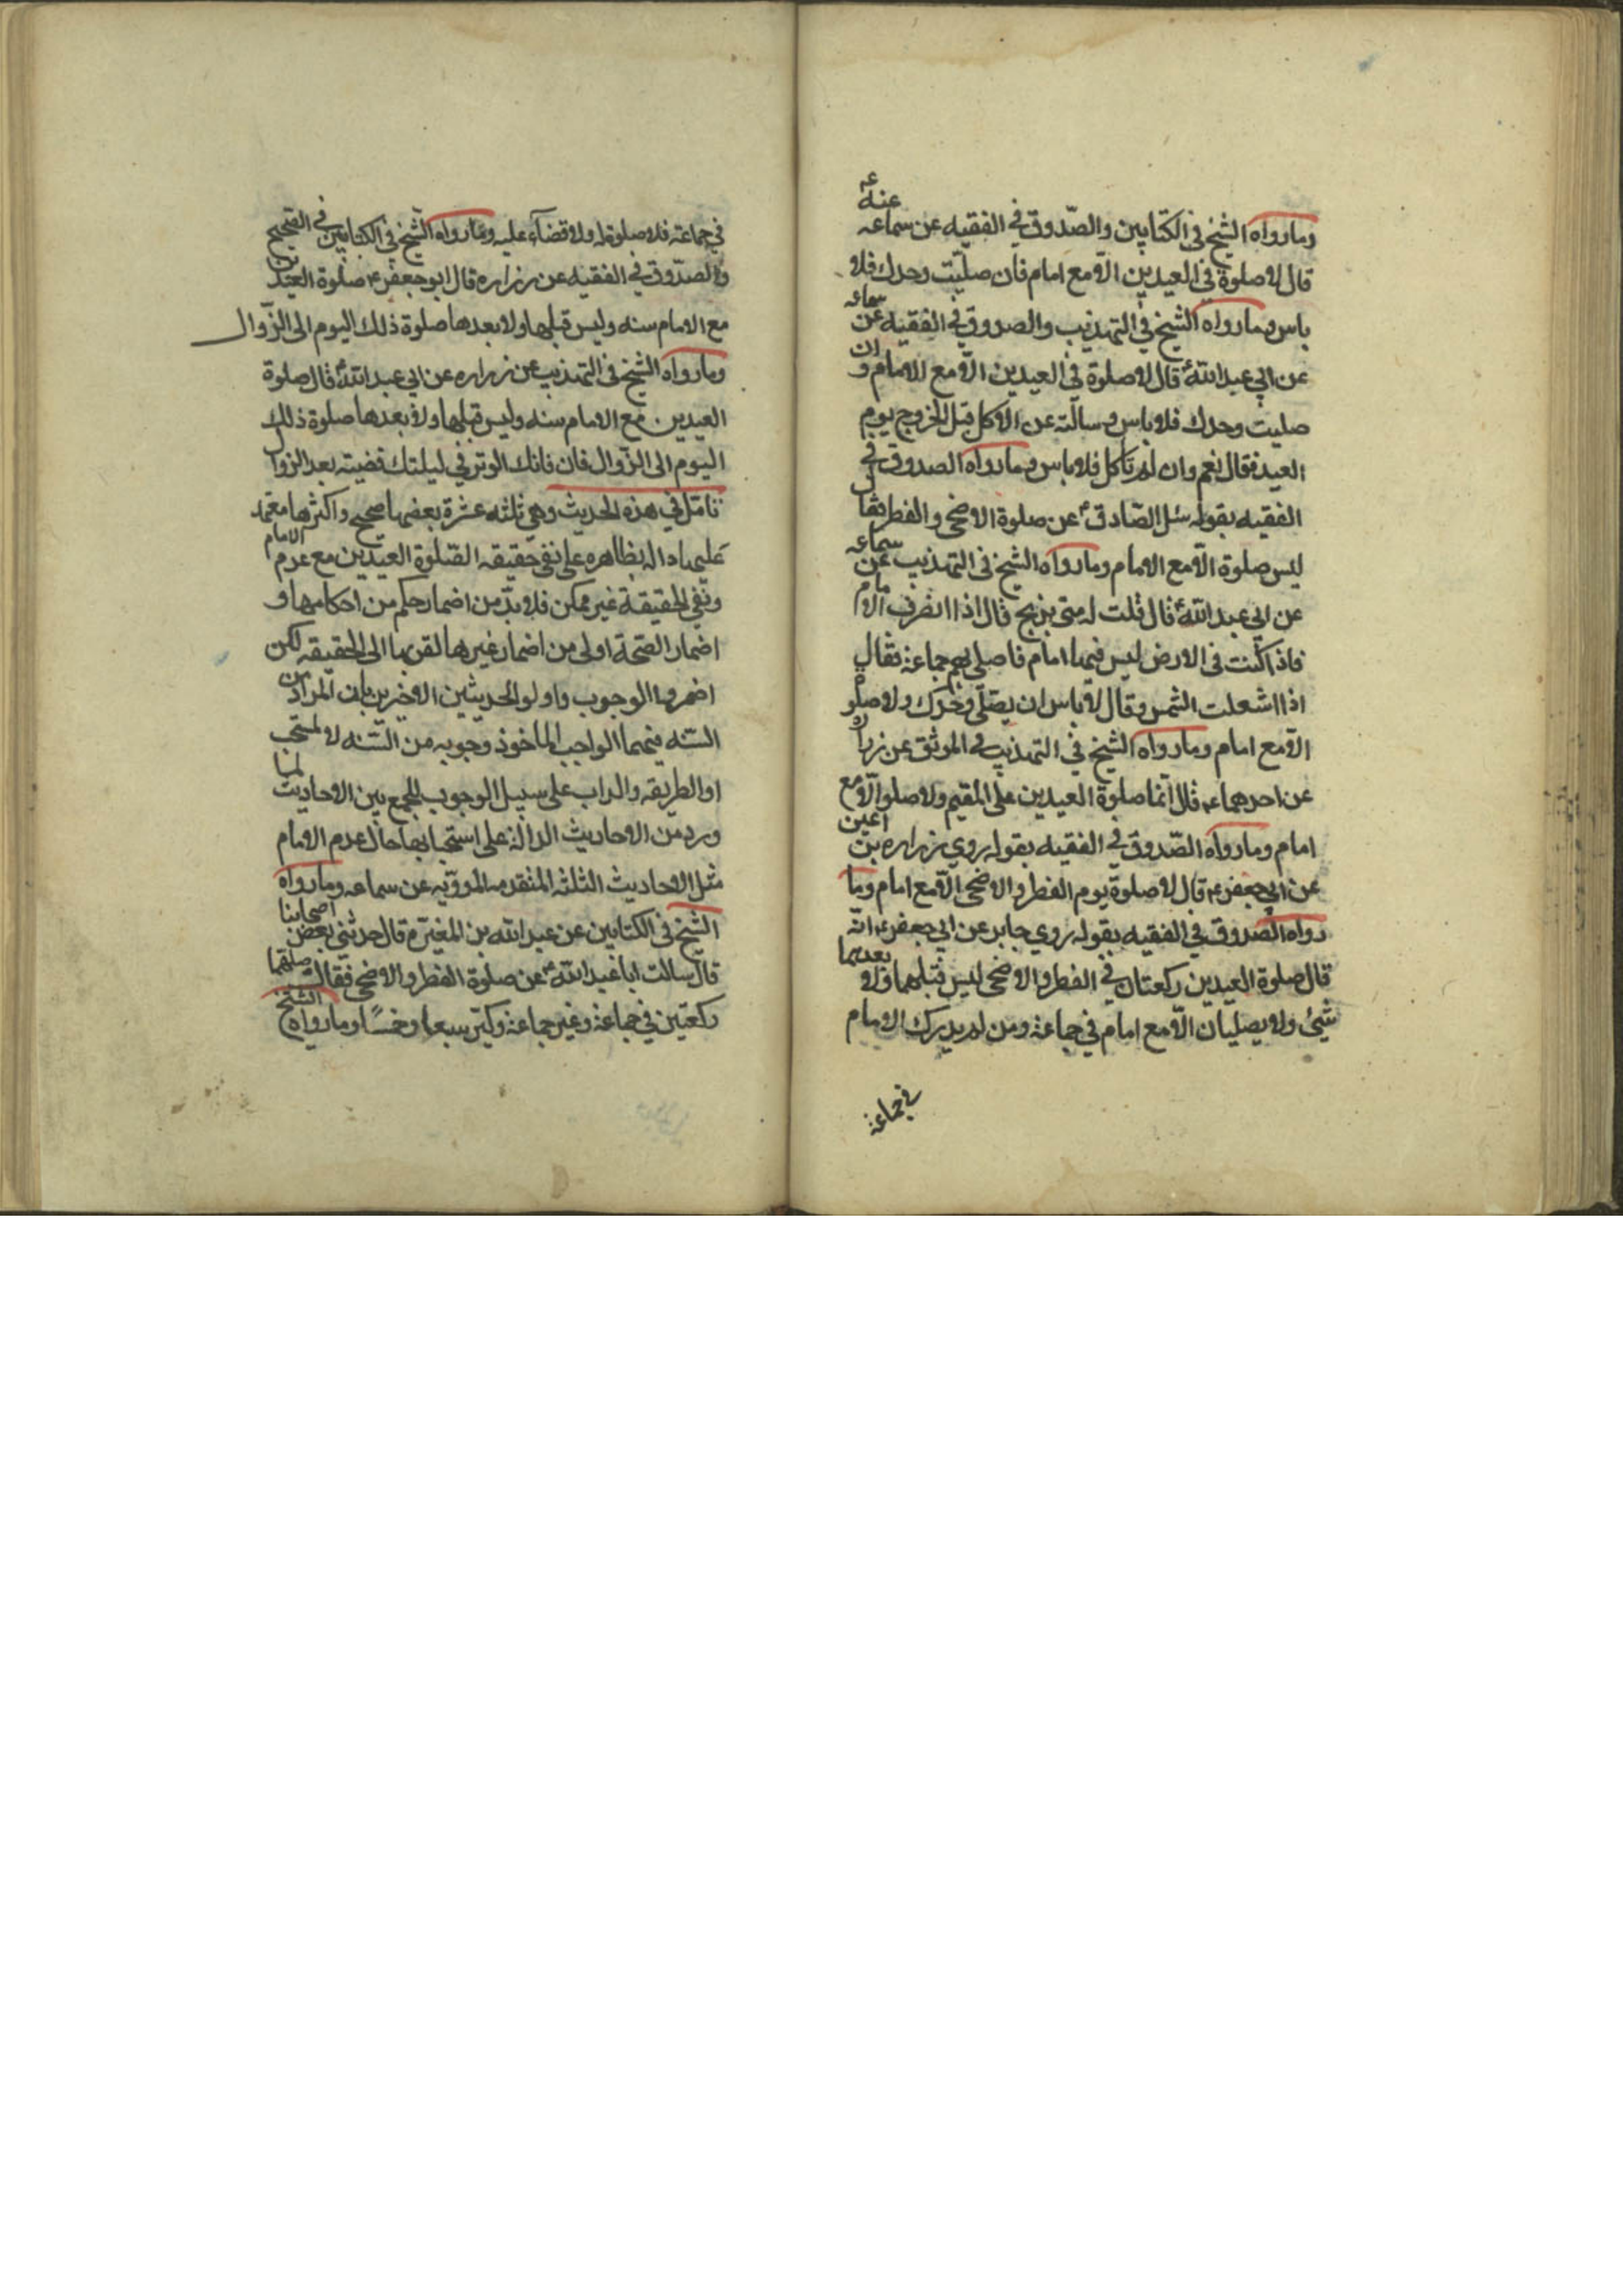 وما رواه الشيخ في الكتابين والصّدوق في الفقيه عن سماعه عنه ع
قال لا صلوة في العيدين الّا مع امام فان صليّت وحدك فلا
باس وما رواه الشيخ في التهذيب والصدوق في الفقيه عن سماعه
عن ابي عبدالله ع قال لا صلوة في العيدين الّا مع الامام و ان
صليت وحدك فلا باس وسالته عن الاكل قبل الخروج يوم
العيد فقال نعم وان لم تاكل فلا باس وما رواه الصدوق في
الفقيه بقوله سئل الصّادق ع عن صلوة الاضحى والفطر فقال
ليس صلوة الّا مع الامام وما رواه الشيخ في التهذيب عن سماعه
عن ابي عبدالله ع قال قلت له متى يذبح قال اذا انصرف الامام
فاذا كنت في الارض ليس فيها امام فاصلي بهم جماعة فقال
اذا اشعلت الشمس وقال لا باس ان يصلّي وحدك ولا صلوة
الّا مع امام وما رواه الشيخ في التهذيب في الموثق عن زراره
عن احدهما ع قال انّما صلوة العيدين على المقيم ولا صلوة الّا مع
امام وما رواه الصّدوق في الفقيه بقوله روي زراره بن اعين
عن ابي جعفر ع قال لا صلوة يوم الفطر والاضحى الّا مع امام وما
رواه الصدوق في الفقيه بقوله روي جابر عن ابي جعفر ع انّه
قال صلوة العيدين ركعتان في الفطر والاضحى ليس قبلهما ولا بعدهما
شيئ ولا يصليان الّا مع امام في جماعة ومن لم يدرك الامام
في جماعة
في جماعة فلا صلوة له ولا قضآء عليه وما رواه الشيخ في الكتابين في الصحيح
والصدّوق في الفقيه عن زراره قال ابو جعفر ع صلوة العيدين
مع الامام سنه وليس قبلها ولا بعدها صلوة ذلك اليوم الى الزّوال
وما رواه الشيخ في التهذيب عن زراره عن ابي عبدالله ع قال صلوة
العيدين مع الامام سنه وليس قبلها ولا بعدها صلوة ذلك
اليوم الى الزّوال فان فاتك الوتر في ليلتك قضيته بعد الزوال
تامّل في هذه الحديث وهي ثلثه عشرة بعضها صحيح واكثرها معتمد
عليها داله بظاهره على نفي حقيقه الصّلوة العيدين مع عدم الامام
ونفي الحقيقة غير ممكن فلا بدّ من اضمار حكم من احكامها و
اضمار الصّحة اولى من اضمار غيرها لقربها الى الحقيقه لكن
اضمروا الوجوب واولوا الحديثين الاخيرين بان المراد من
السّنه فيهما الواجب الماخوذ وجوبه من السّنه لا المستحب
او الطريقه والداب على سبيل الوجوب للجمع بين الاحاديث لما
ورد من الاحاديث الدالة على استحبابها حال عدم الامام
مثل الاحاديث الثلثه المتقدمه المرويّه عن سماعه وما رواه
الشيخ في الكتابين عن عبدالله بن المغيره قال حدثني بعض اصحابنا
قال سالت ابا عبدالله ع عن صلوة الفطر والاضحى فقال صلهما
ركعتين في جماعة وغير جماعة وكبّر سبعا وخمسًا وما رواه الشيخ